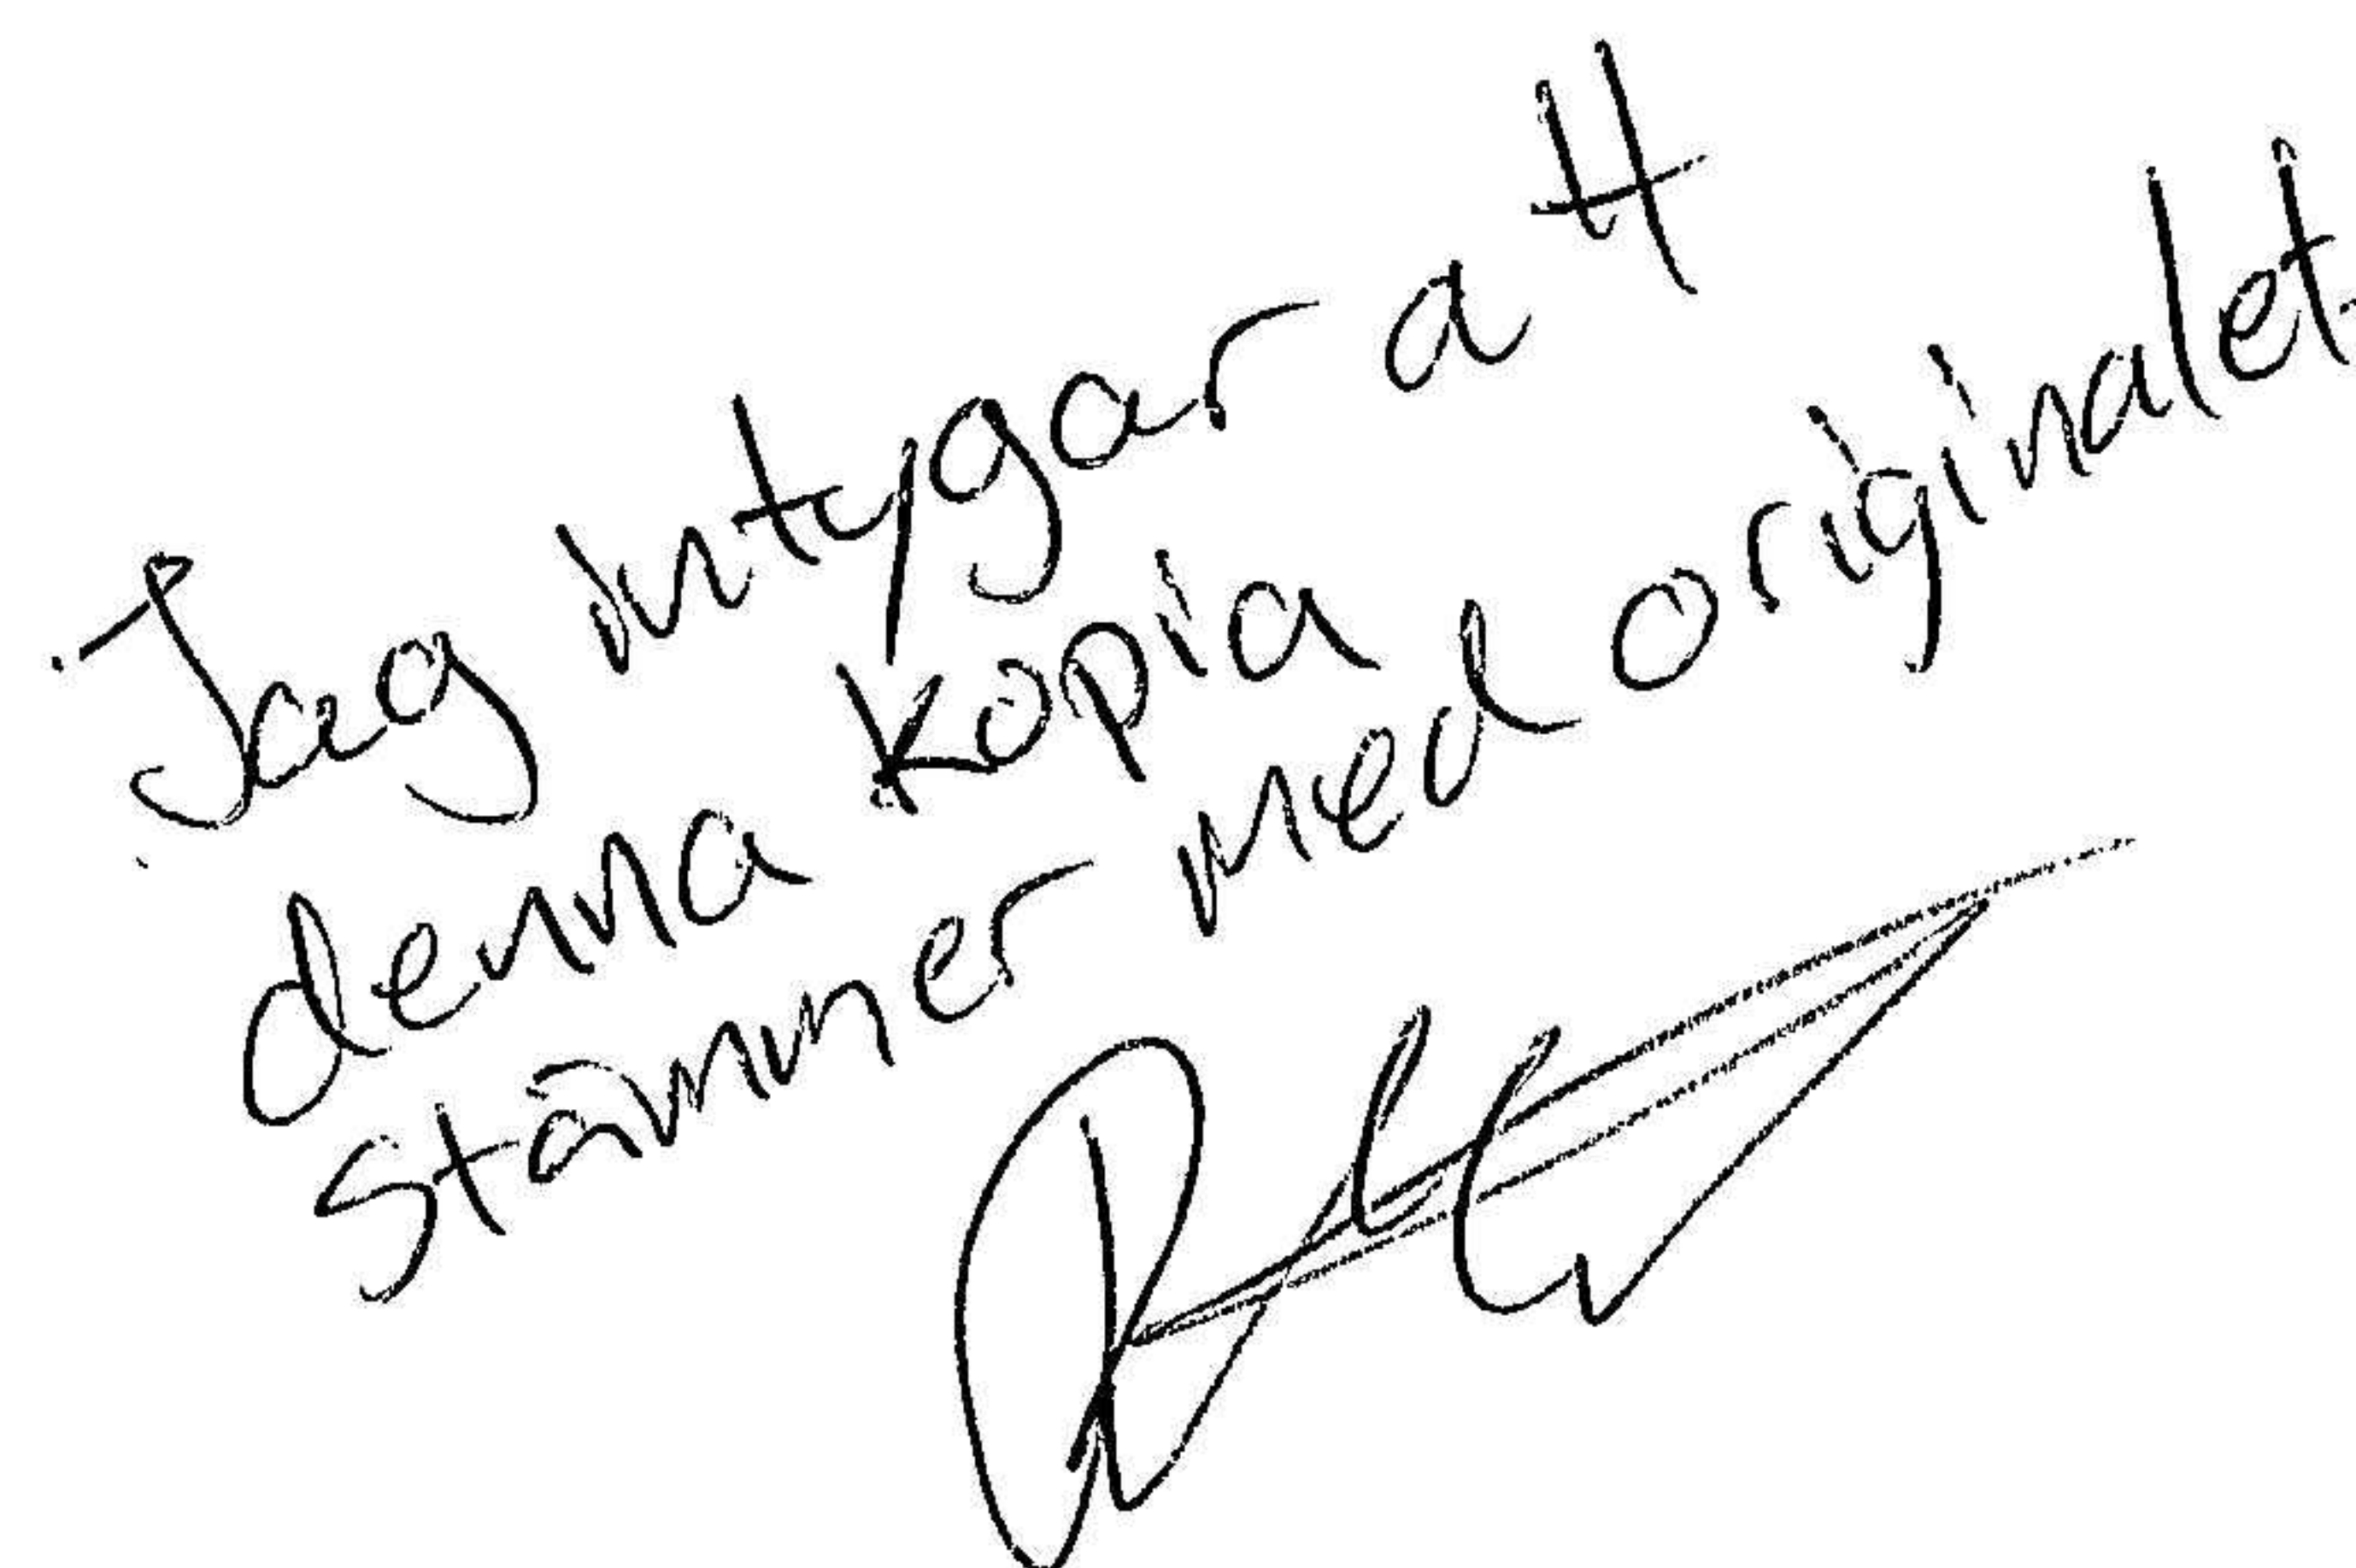 Jag intygar att
denna kopia
stämmer med originalet.